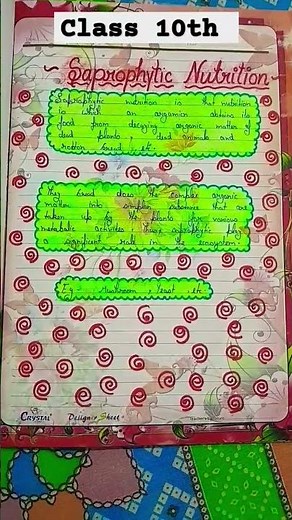 Class 10th
~ Saprophytic Nutrition ~
Saprophytic nutrition is that nutrition
in which an organism obtains its
food from decaying organic matter of
dead plants, dead animals and
rotten bread, etc.
They break down the complex organic
matter into simpler substances that are
taken up by the plants for various
metabolic activities. Thus saprophytic play
a significant role in the ecosystem.
Eg. Mushroom, Yeast etc.
CRYSTAL Designer Sheet